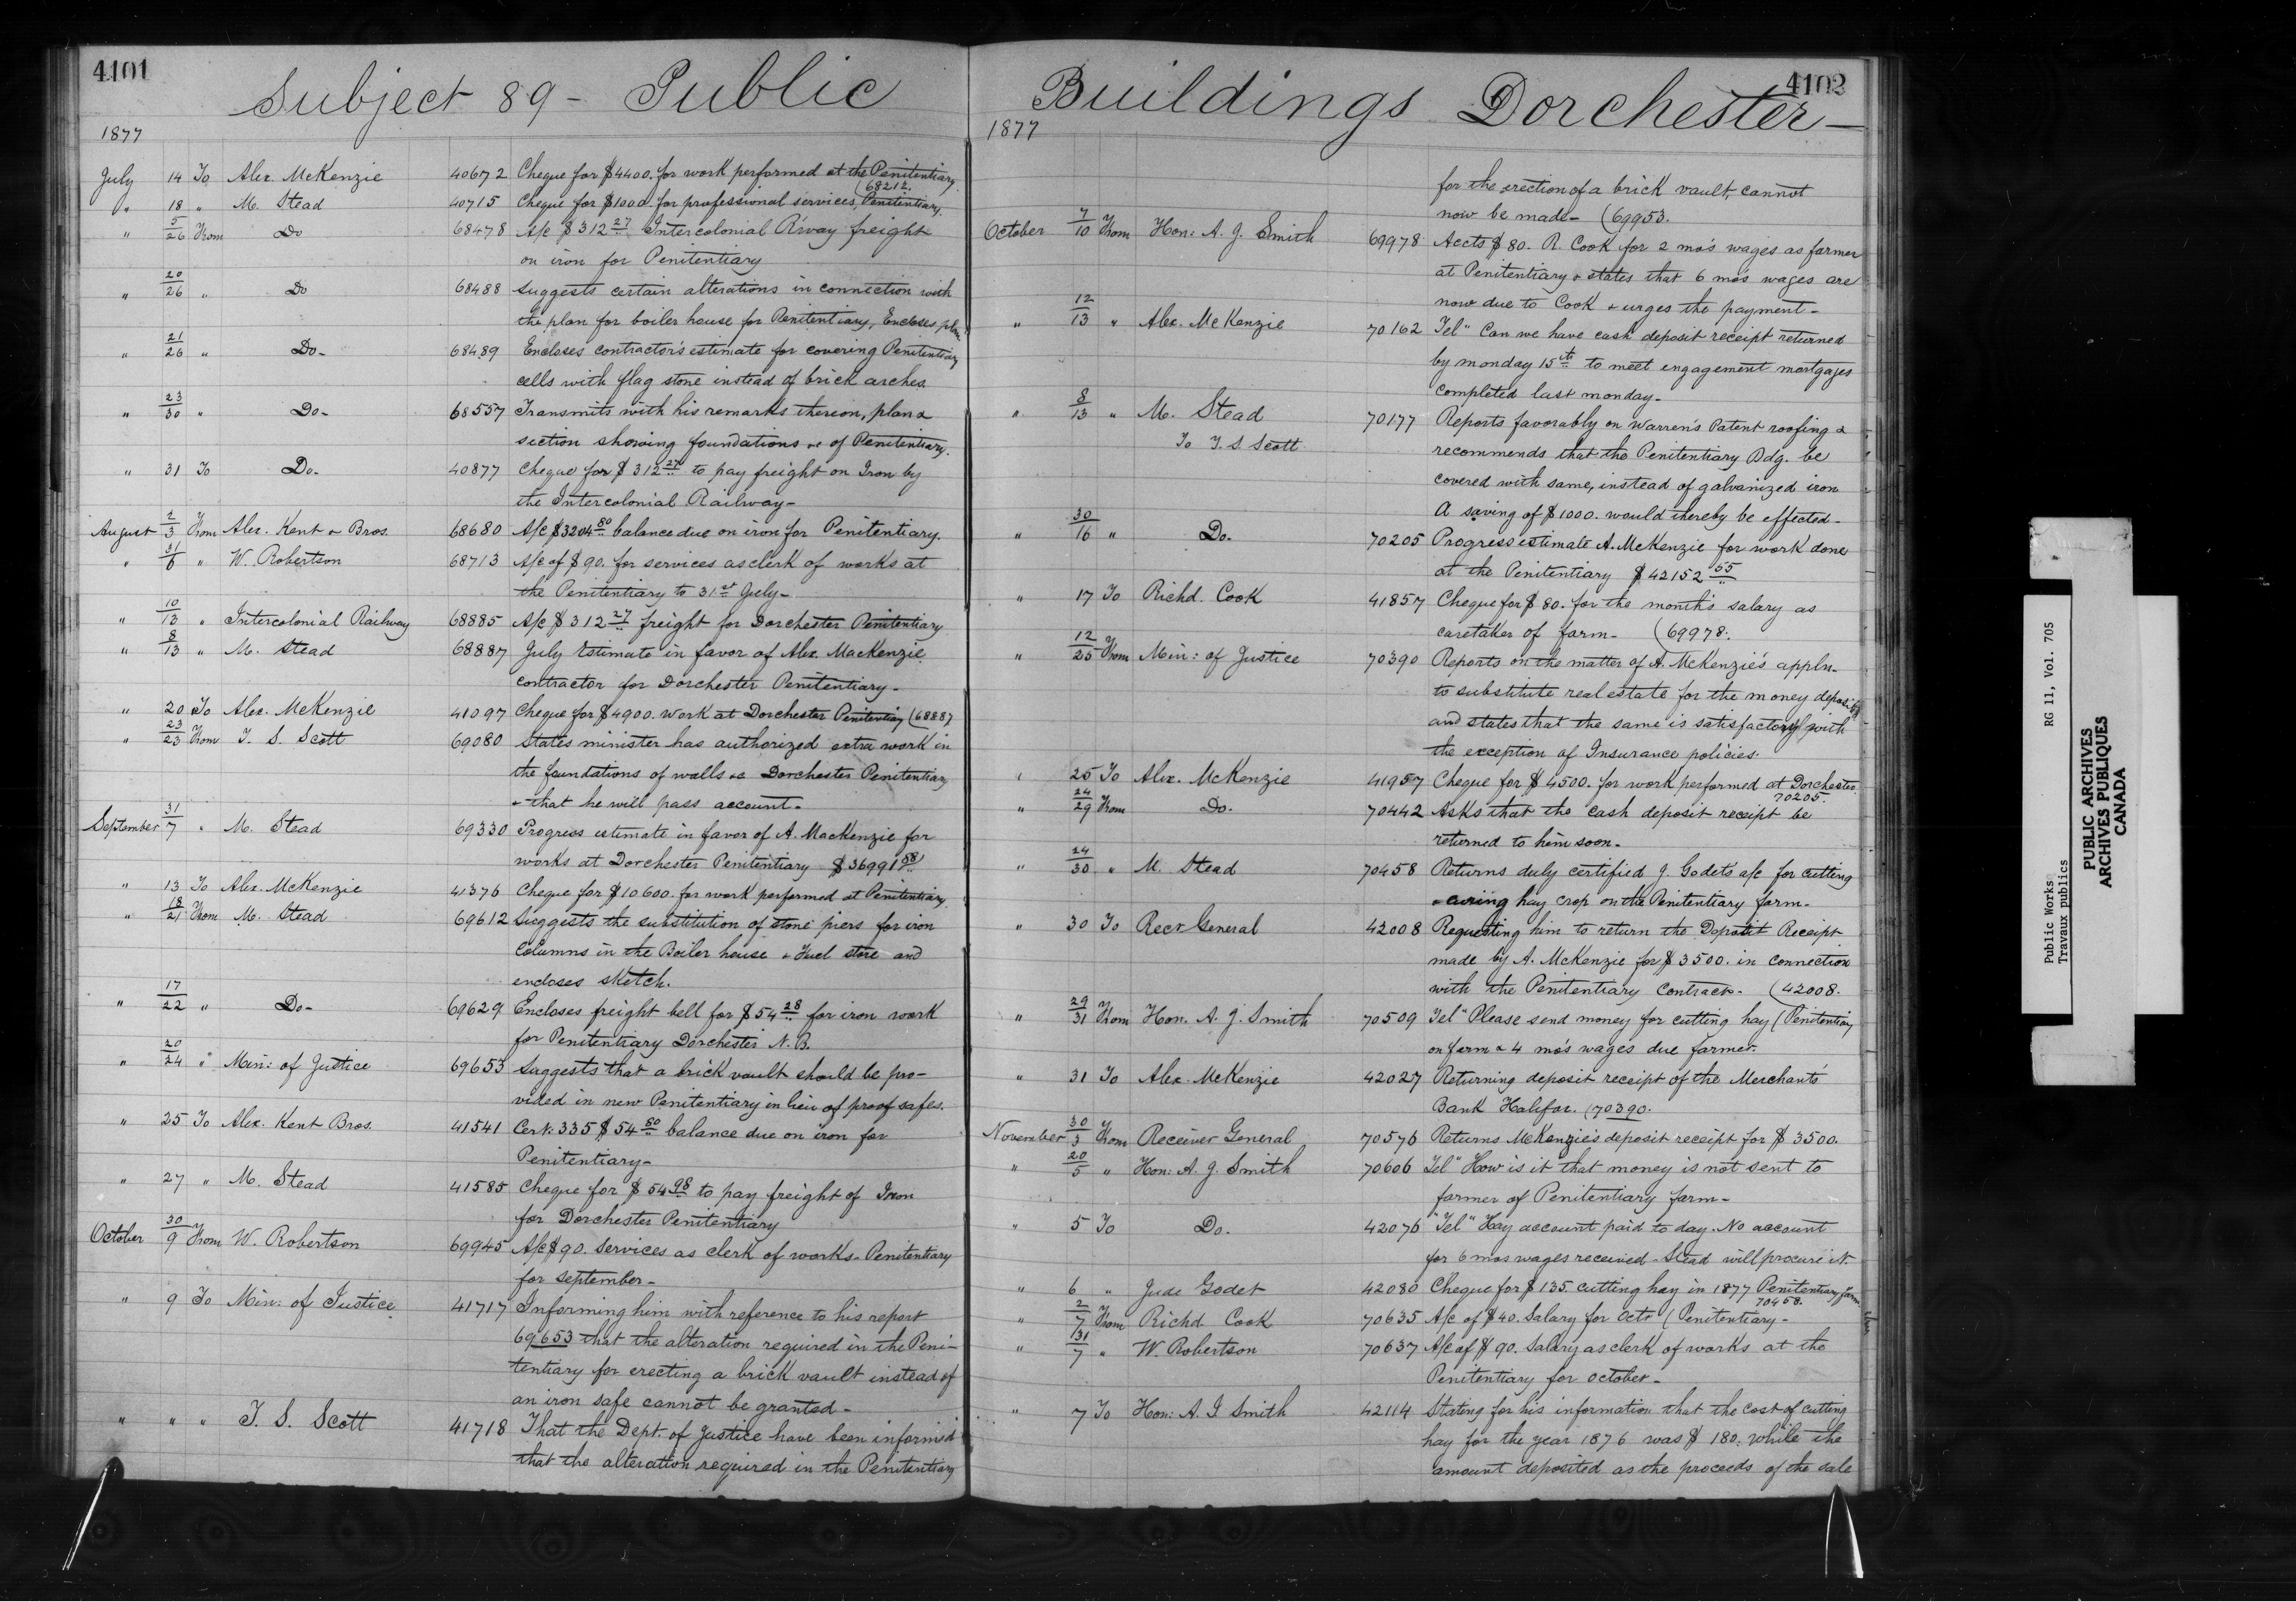 4101
Subject 89 - Public
1877
July 14 To Alex. McKenzie 40672 Cheque for $4400. for work performed at the Penitentiary
(68212.
" 18 " M. Stead 40715 Cheque for $1000. for professional services, Penitentiary.
" 5/26 From Do 68478 A/c $312 27 Intercolonial R'way freight
on iron for Penitentiary
" 20/26 " Do 68488 Suggests certain alterations in connection with
the plan for boiler house for Penitentiary, Encloses plan
" 21/26 " Do- 68489 Encloses contractor's estimate for covering Penitentiary
cells with flag stone instead of brick arches
" 23/30 " Do- 68557 Transmits with his remarks thereon, plan &
section showing foundations &c of Penitentiary.
" 31 To Do- 40877 Cheque for $312 27 to pay freight on Iron by
the Intercolonial Railway-
August 2/3 From Alex. Kent & Bros. 68680 A/c $3204 80 balance due on iron for Penitentiary.
" 31/6 " W. Robertson 68713 A/c of $90. for services as clerk of works at
the Penitentiary to 31st July-
" 10/13 " Intercolonial Railway 68885 A/c $312 27 freight for Dorchester Penitentiary
" 8/13 " M. Stead 68887 July Estimate in favor of Alex. MacKenzie
contractor for Dorchester Penitentiary-
" 20 To Alex. McKenzie 41097 Cheque for $4900. work at Dorchester Penitentiary (68887
" 23/23 From T. S. Scott 69080 States minister has authorized extra work in
the foundations of walls &c Dorchester Penitentiary
& that he will pass account-
September 31/7 " M. Stead 69330 Progress estimate in favor of A. MacKenzie for
works at Dorchester Penitentiary $36991 58
" 13 To Alex. McKenzie 41376 Cheque for $10600. for work performed at Penitentiary,
" 18/21 From M. Stead 69612 Suggests the substitution of stone piers for iron
Columns in the Boiler house & Fuel store and
encloses sketch.
" 17/22 " Do- 69629 Encloses freight bell for $54 28 for iron work
for Penitentiary Dorchester N.B.
" 20/24 " Min: of Justice 69653 Suggests that a brick vault should be pro-
vided in new Penitentiary in lieu of proof safes.
" 25 To Alex. Kent Bros. 41541 Cert. 335 $54 80 balance due on iron for
Penitentiary-
" 27 " M. Stead 41585 Cheque for $54 98 to pay freight of Iron
for Dorchester Penitentiary
October 30/9 From W. Robertson 69945 A/c $90. Services as clerk of works- Penitentiary
for September-
" 9 To Min: of Justice 41717 Informing him with reference to his report
69653 that the alteration required in the Peni-
tentiary for erecting a brick vault instead of
an iron safe cannot be granted-
" " " T. S. Scott 41718 That the Dept. of Justice have been informed
that the alteration required in the Penitentiary
4102
Buildings Dorchester-
1877
for the erection of a brick vault, cannot
now be made- (69953.
October 7/10 From Hon: A. J. Smith 69978 Accts $80. R. Cook for 2 mo's wages as farmer
at Penitentiary & states that 6 mo's wages are
now due to Cook & urges the payment-
" 12/13 " Alex. McKenzie 70162 Tel" Can we have cash deposit receipt returned
by monday 15th to meet engagement mortgages
completed last monday-
" 8/13 " M. Stead 70177 Reports favorably on Warren's Patent roofing &
To T. S. Scott recommends that the Penitentiary Bdg. be
covered with same, instead of galvanized iron
A saving of $1000. would thereby be effected-
" 30/16 " Do. 70205 Progress estimate A. McKenzie for work done
at the Penitentiary $42152 55
" 17 To Richd. Cook 41857 Cheque for $80. for the month's salary as
caretaker of farm- (69978.
" 12/25 From Min: of Justice 70390 Reports on the matter of A. McKenzie's appln-
to substitute real estate for the money deposited
and states that the same is satisfactory with
the exception of Insurance policies.
" 25 To Alex. McKenzie 41957 Cheque for $4500. for work performed at Dorchester.
70205.
" 24/29 From Do. 70442 Asks that the cash deposit receipt be
returned to him soon-
" 24/30 " M. Stead 70458 Returns duly certified J. Godet's a/c for cutting
& curing hay crop on the Penitentiary farm-
" 30 To Recr. General 42008 Requesting him to return the Deposit Receipt
made by A. McKenzie for $3500. in connection
with the Penitentiary Contract- (42008.
" 29/31 From Hon. A. J. Smith 70509 Tel" Please send money for cutting hay (Penitentiary
on farm & 4 mo's wages due farmer.
" 31 To Alex. McKenzie 42027 Returning deposit receipt of the Merchants'
Bank Halifax. (70390.
November 30/3 From Receiver General 70576 Returns McKenzie's deposit receipt for $3500.
" 20/5 " Hon: A. J. Smith 70606 Tel" How is it that money is not sent to
farmer of Penitentiary farm-
" 5 To Do. 42076 "Tel" Hay account paid to day. No account
for 6 mos wages received- Stead will procure it.
" 6 " Jude Godet 42080 Cheque for $135. cutting hay in 1877 Penitentiary farm
70458.
" 2/7 From Richd Cook 70635 A/c of $40. Salary for Octr (Penitentiary-
" 31/7 " W. Robertson 70637 A/c of $90. Salary as clerk of works at the
Penitentiary for October-
" 7 To Hon: A. J Smith 42114 Stating for his information that the cost of cutting
hay for the year 1876 was $180. while the
amount deposited as the proceeds of the sale
Public Works RG 11, Vol. 705
Travaux publics
PUBLIC ARCHIVES
ARCHIVES PUBLIQUES
CANADA